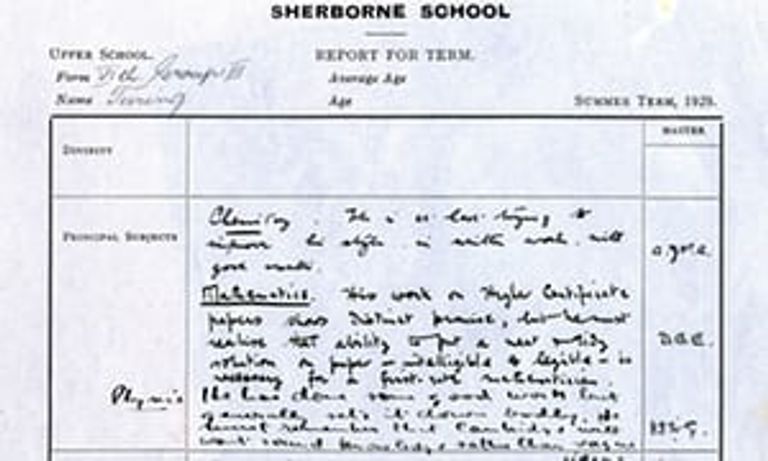 SHERBORNE SCHOOL
UPPER SCHOOL.
REPORT FOR TERM.
Form VIth Group III
Average Age
Name Turing
Age
SUMMER TERM, 1929.
MASTER
DIVINITY
PRINCIPAL SUBJECTS
Chemistry. He is at last trying to
improve his style in written work, with
good results.
Mathematics. His work on Higher Certificate
papers shows distinct promise, but he must
realise that ability to put a neat & tidy
solution on paper - intelligible & legible - is
necessary for a first-rate mathematician.
Physics
He has done some good work but
generally sets it down badly. He
must remember that Cambridge will
want sound knowledge rather than vague
ideas